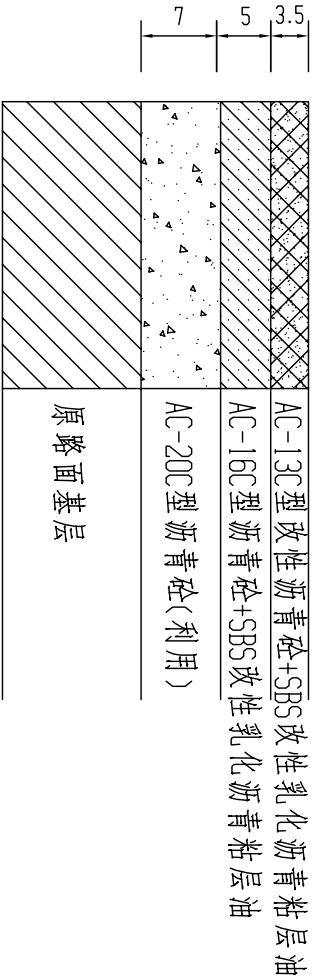 3.5
AC-13C型改性沥青砼+SBS改性乳化沥青粘层油
5
AC-16C型沥青砼+SBS改性乳化沥青粘层油
7
AC-20C型沥青砼(利用)
原路面基层